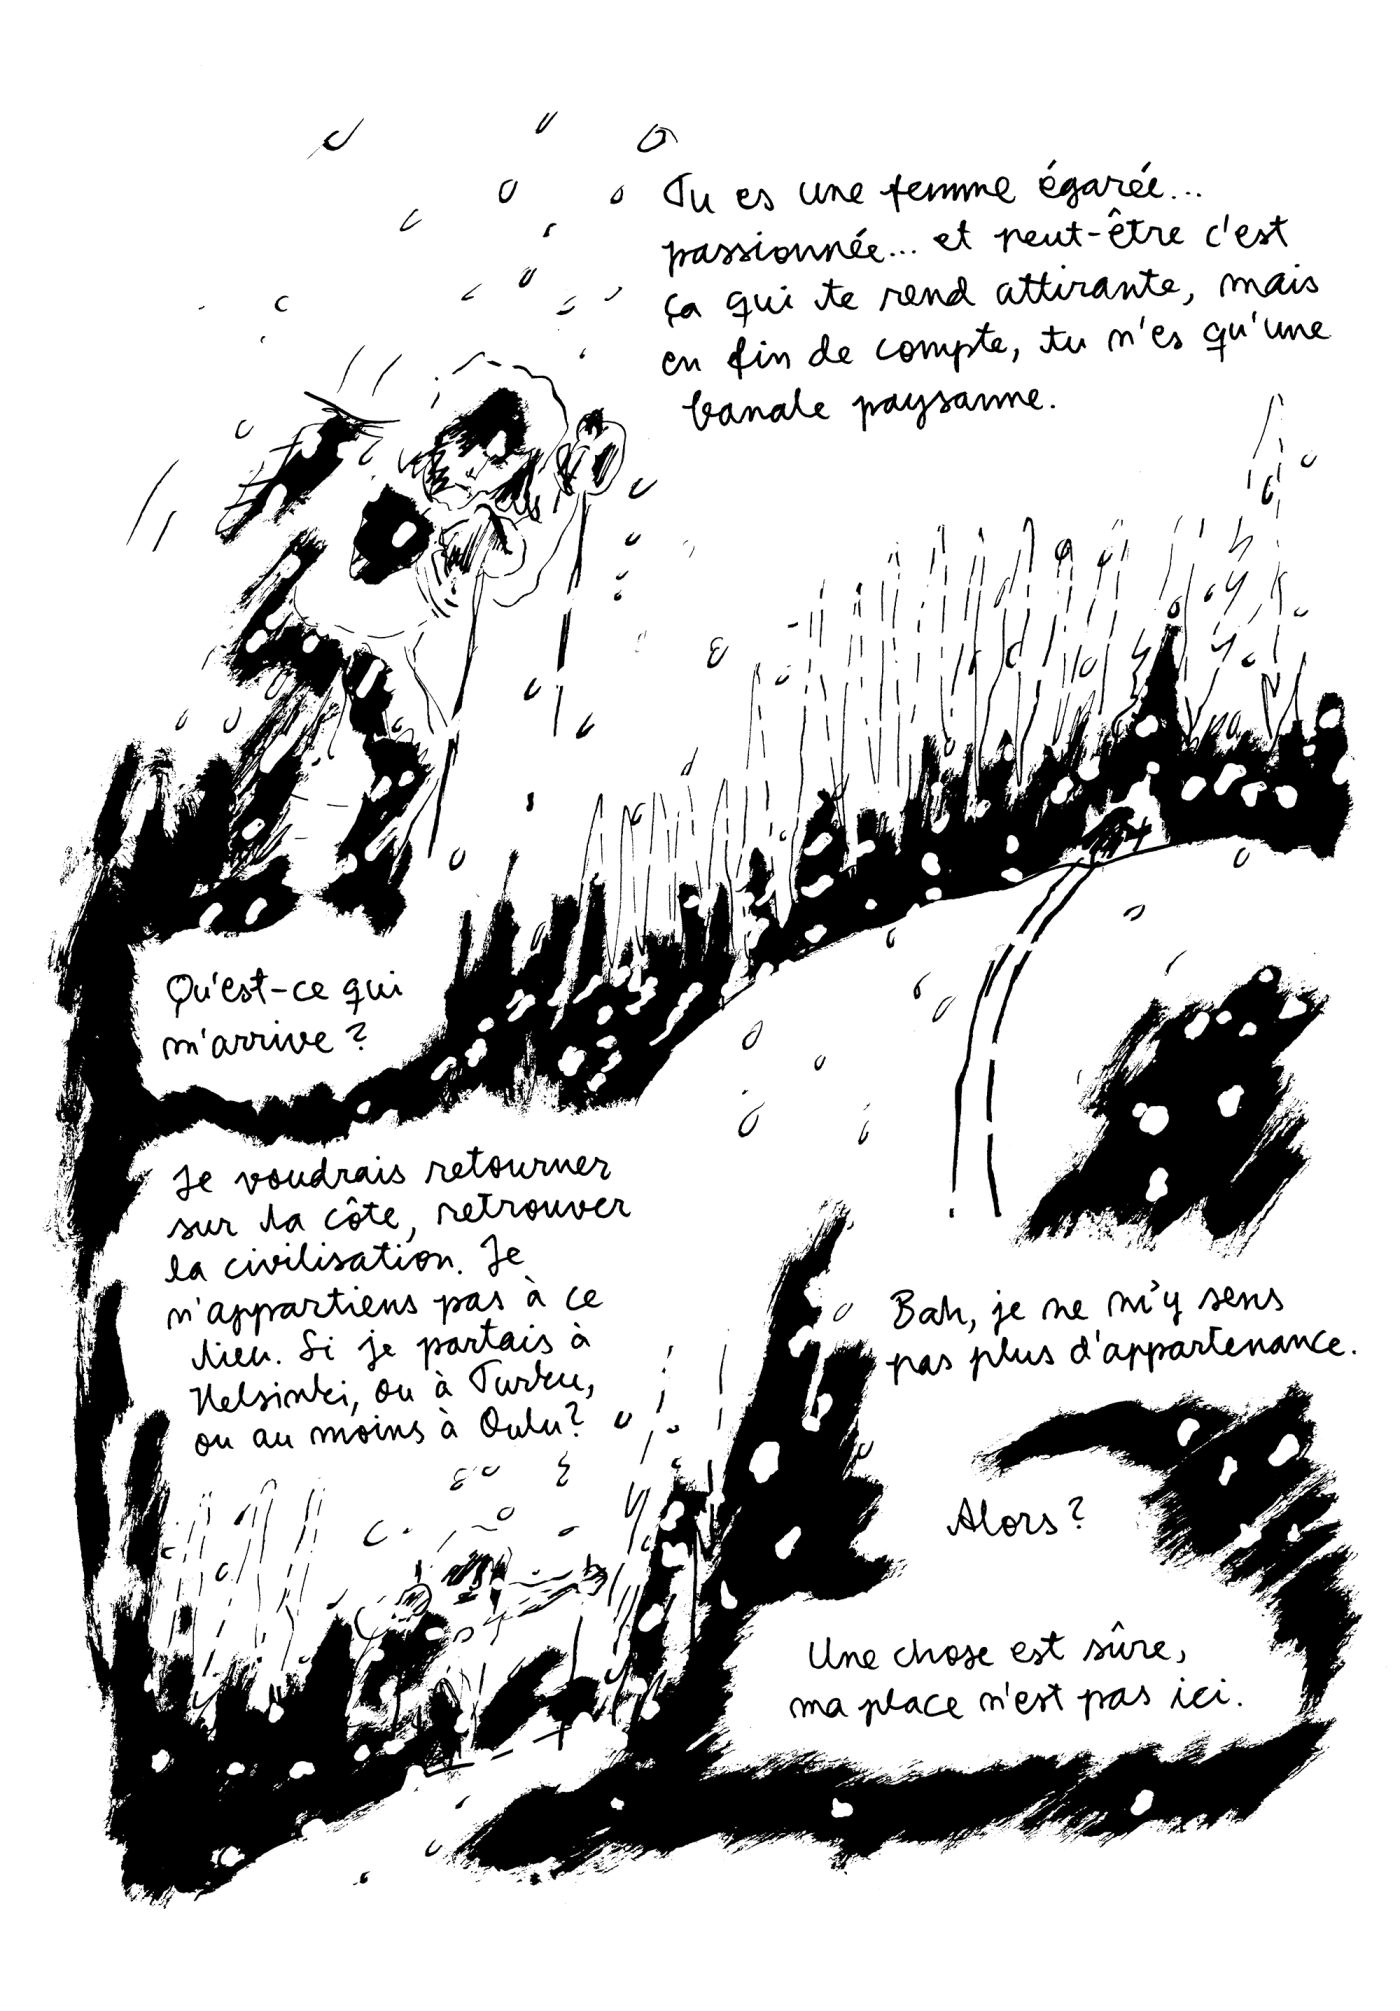 Tu es une femme égarée...
passionnée... et peut-être c'est
ça qui te rend attirante, mais
en fin de compte, tu n'es qu'une
banale paysanne.
Qu'est-ce qui
m'arrive ?
Je voudrais retourner
sur la côte, retrouver
la civilisation. Je
n'appartiens pas à ce
lieu. Si je partais à
Helsinki, ou à Turku,
ou au moins à Oulu ?
Bah, je ne m'y sens
pas plus d'appartenance.
Alors ?
Une chose est sûre,
ma place n'est pas ici.